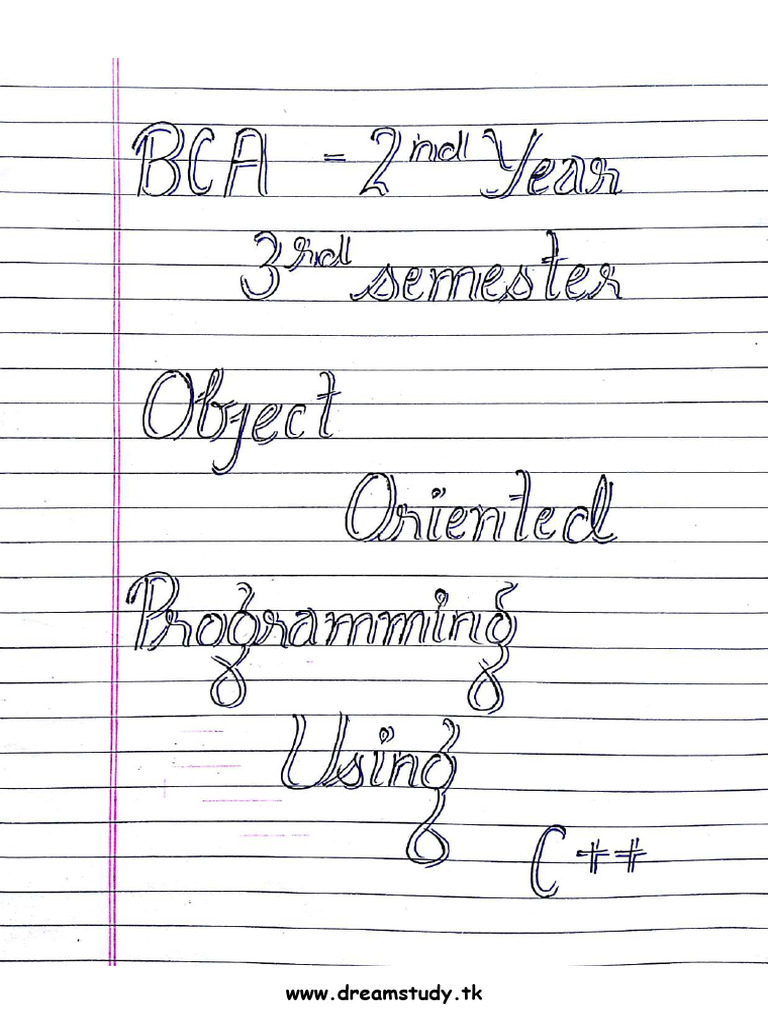 BCA = 2nd Year
3rd semester
Object
Oriented
Programming
Using
C++
www.dreamstudy.tk